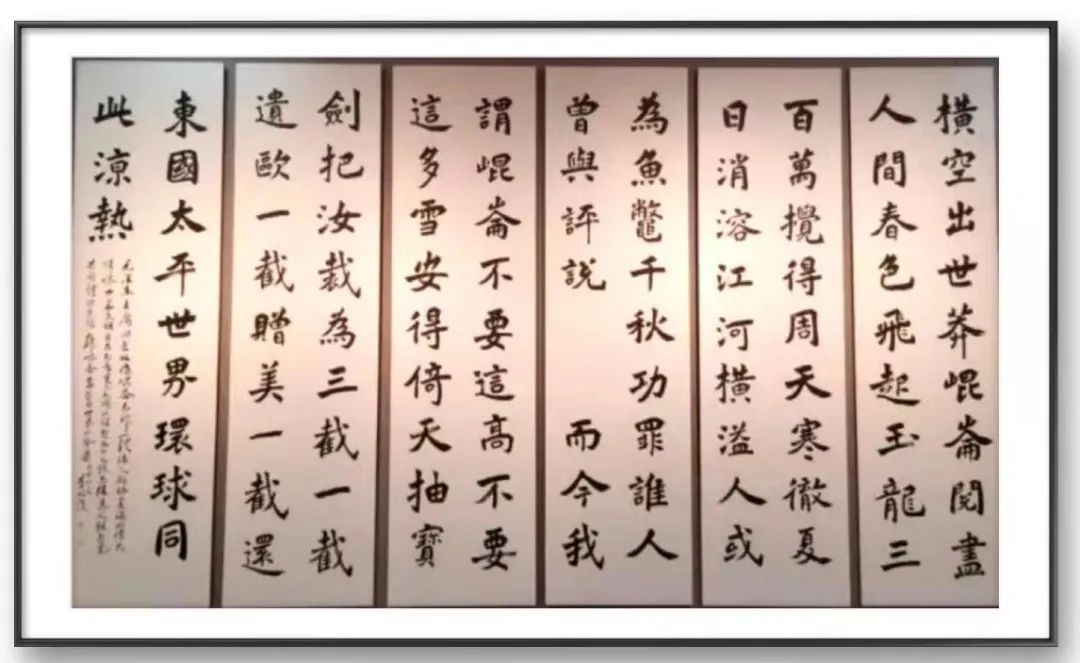 橫空出世莽崐崙閱盡
人間春色飛起玉龍三
百萬攪得周天寒徹夏
日消溶江河橫溢人或
為魚鼈千秋功罪誰人
曾與評說 而今我
謂崐崙不要這高不要
這多雪安得倚天抽寶
劍把汝裁為三截一截
遺歐一截贈美一截還
東國太平世界環球同
此涼熱